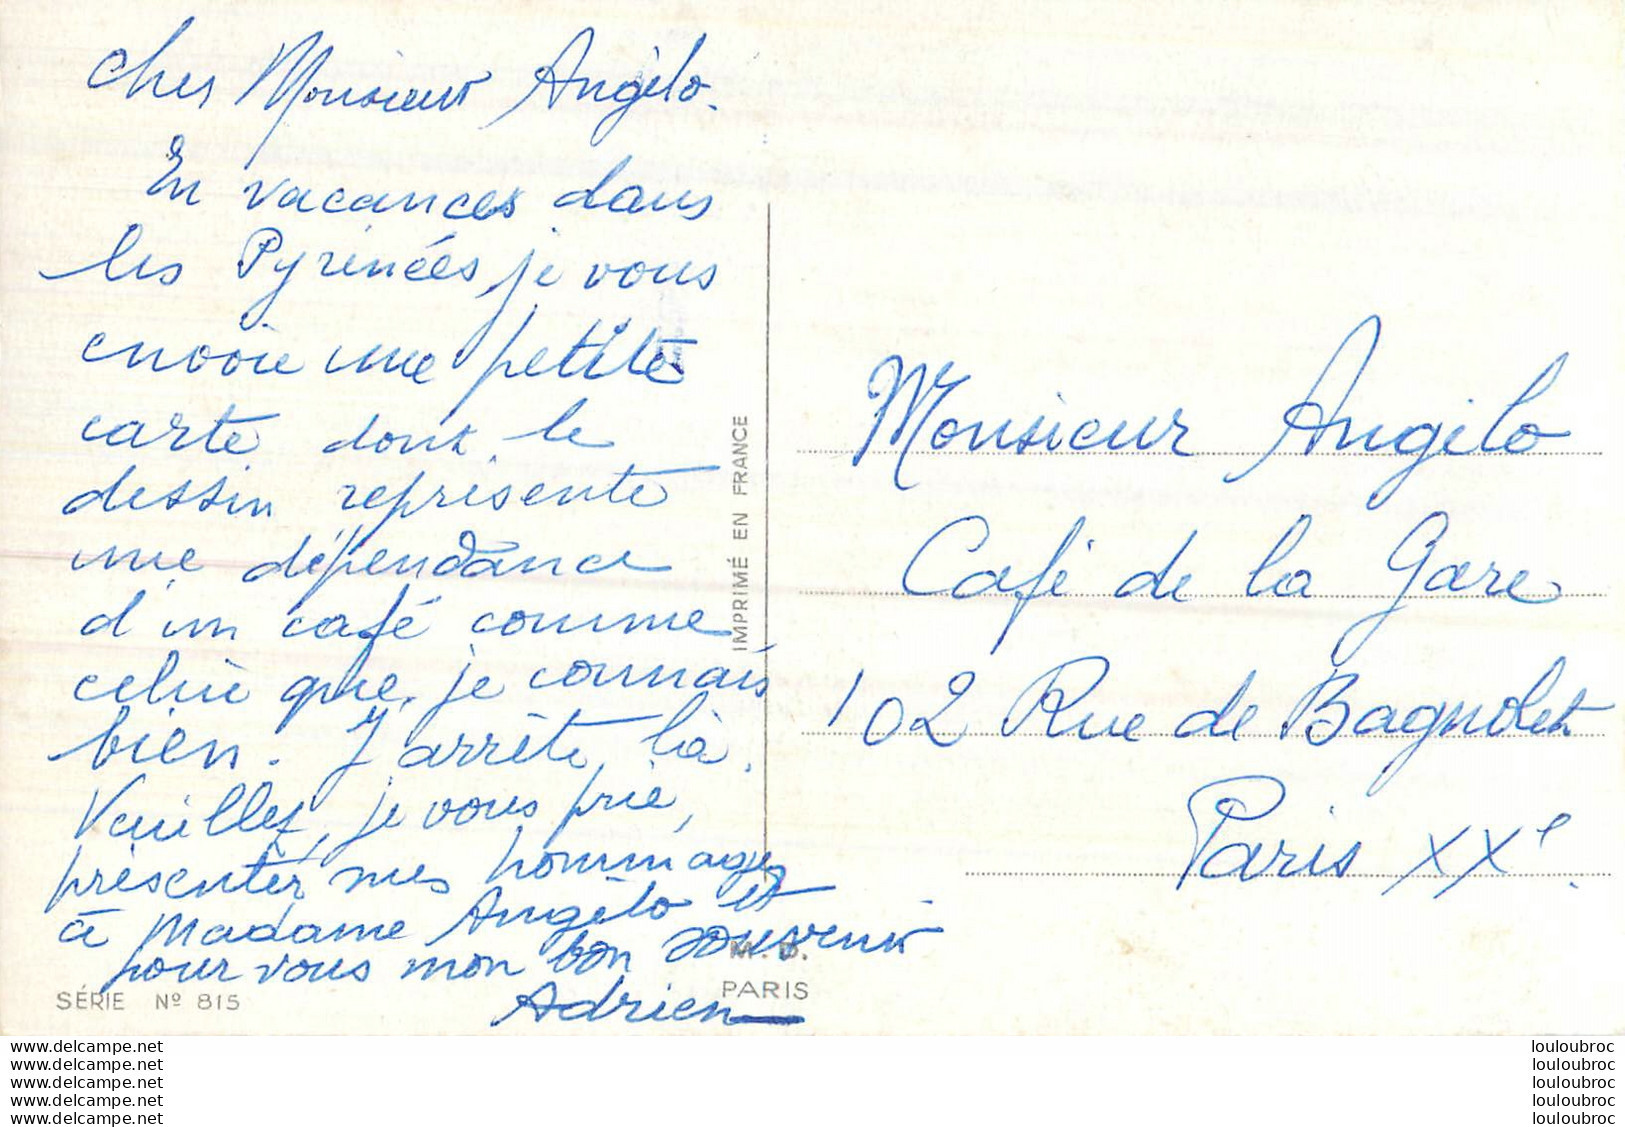 Cher Monsieur Angélo.
En vacances dans
les Pyrénées, je vous
envoie une petite
carte dont le
dessin représente
une dépendance
d'un café comme
celui que je connais
bien. J'arrête là.
Veuillez, je vous prie,
présenter mes hommages
à Madame Angélo et
pour vous mon bon souvenir
Adrien
SÉRIE Nº 815
IMPRIMÉ EN FRANCE
M. D.
PARIS
Monsieur Angélo
Café de la Gare
102 Rue de Bagnolet
Paris XXe.
www.delcampe.net
www.delcampe.net
www.delcampe.net
www.delcampe.net
www.delcampe.net
louloubroc
louloubroc
louloubroc
louloubroc
louloubroc